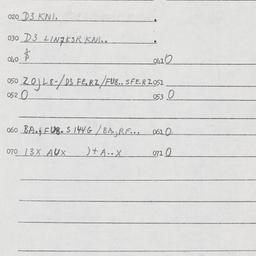 020 D3 KNI.
030 D3 LINZK3R KNI..
040 061 0
050 ZOJL8-/D3 FE.RZ/FU8..SFERZ 051
052 0 053 0
060 BA.J FU8. S 144G /BA.JRF... 061 0
070 13X AUX )+A..X 071 0